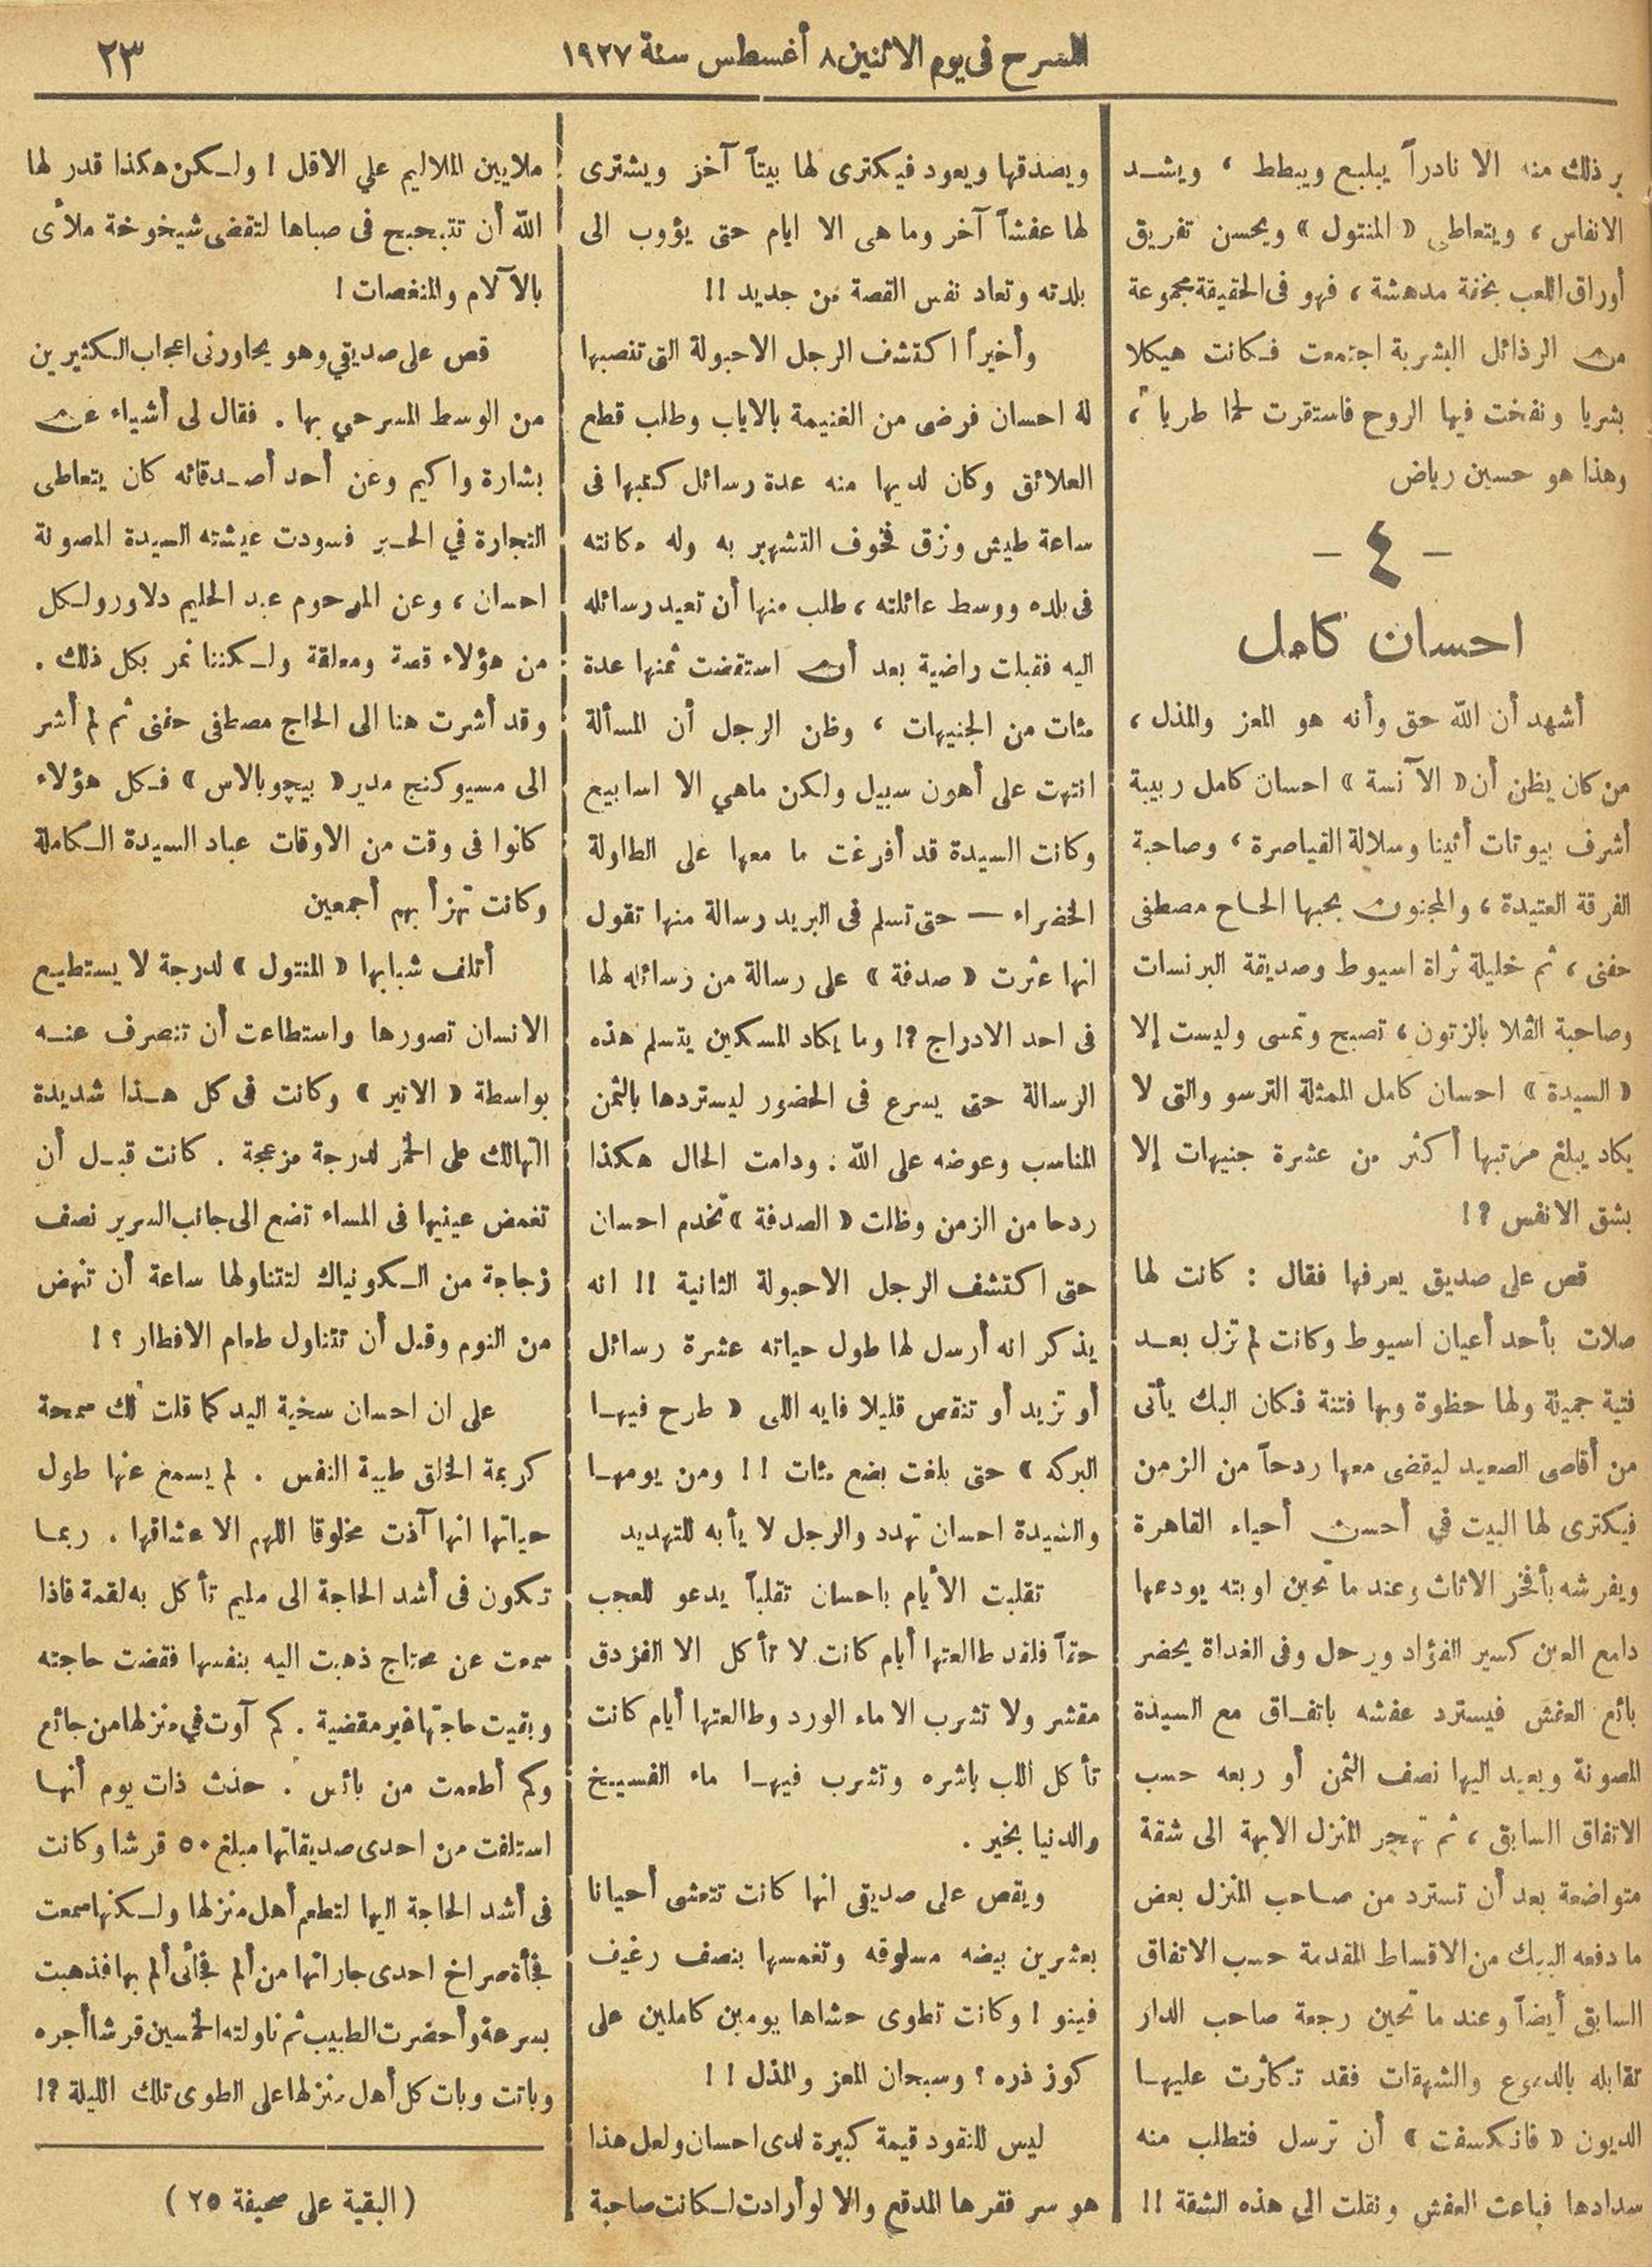 المسرح فى يوم الاثنين ٨ أغسطس سنة ١٩٢٧
٢٣
ير ذلك منه الا نادراً يبلبع ويبطط ، ويشد
الانفاس ، ويتعاطى « المنتول » ويحسن تفريق
أوراق اللعب بخفة مدهشة ، فهو فى الحقيقة مجموعة
من الرذائل البشرية اجتمعت فكانت هيكلا
بشريا ونفخت فيها الروح فاستقرت لحما طريا ،
وهذا هو حسين رياض
— ٤ —
احسان كامل
أشهد أن الله حق وأنه هو المعز والمذل ،
من كان يظن أن « الآنسة » احسان كامل ربيبة
أشرف بيوتات أثينا وسلالة القياصرة ، وصاحبة
الفرقة العتيدة ، والمجنون بحبها الحاج مصطفى
حفنى ، ثم خليلة ثراة اسيوط وصديقة البرنسات
وصاحبة الڤلا بالزتون ، تصبح وتمسى وليست إلا
« السيدة » احسان كامل الممثلة الترسو والتى لا
يكاد يبلغ مرتبها أكثر من عشرة جنيهات إلا
بشق الانفس ؟ !
قص على صديق يعرفها فقال : كانت لها
صلات بأحد أعيان اسيوط وكانت لم تزل بعد
فتية جميلة ولها حظوة وبها فتنة فكان البك يأتى
من أقاصى الصعيد ليقضى معها ردحاً من الزمن
فيكترى لها البيت في أحسن أحياء القاهرة
ويفرشه بأفخر الاثاث وعند ما تحين اوبته يودعها
دامع العين كسير الفؤاد ويرحل وفى الغداة يحضر
بائع العفش فيسترد عفشه باتفاق مع السيدة
المصونة ويعيد اليها نصف الثمن أو ربعه حسب
الاتفاق السابق ، ثم تهجر المنزل الابهة الى شقة
متواضعة بعد أن تسترد من صاحب المنزل بعض
ما دفعه البيك من الاقساط المقدمة حسب الاتفاق
السابق أيضاً وعند ما تحين رجعة صاحب الدار
تقابله بالدموع والشهقات فقد تكاثرت عليها
الديون « فانكسفت » أن ترسل فتطلب منه
سدادها فباعت العفش ونقلت الى هذه الشقة !!
ويصدقها ويعود فيكترى لها بيتاً آخر ويشترى
لها عفشاً آخر وما هى الا ايام حتى يؤوب الى
بلدته وتعاد نفس القصة من جديد !!
وأخيراً اكتشف الرجل الاحبولة التى تنصبها
له احسان فرضى من الغنيمة بالاياب وطلب قطع
العلائق وكان لديها منه عدة رسائل كتبها فى
ساعة طيش ونزق فخوف التشهير به وله مكانته
فى بلده ووسط عائلته ، طلب منها أن تعيد رسائله
اليه فقبلت راضية بعد أن استقضت ثمنها عدة
مئات من الجنيهات ، وظن الرجل أن المسألة
انتهت على أهون سبيل ولكن ماهي الا اسابيع
وكانت السيدة قد أفرغت ما معها على الطاولة
الخضراء — حتى تسلم فى البريد رسالة منها تقول
انها عثرت « صدفة » على رسالة من رسائله لها
فى احد الادراج ؟! وما يكاد المسكين يتسلم هذه
الرسالة حتى يسرع فى الحضور ليستردها بالثمن
المناسب وعوضه على الله . ودامت الحال هكذا
ردحا من الزمن وظلت « الصدفة » تخدم احسان
حتى اكتشف الرجل الاحبولة الثانية !! انه
يذكر انه أرسل لها طول حياته عشرة رسائل
أو تزيد أو تنقص قليلا فايه اللى « طرح فيها
البركه » حتى بلغت بضع مئات !! ومن يومها
والسيدة احسان تهدد والرجل لا يأبه للتهديد
تقلبت الأيام باحسان تقلباً يدعو للعجب
حقاً فلقد طالعتها أيام كانت لا تأكل الا الفزدق
مقشر ولا تشرب الا ماء الورد وطالعتها أيام كانت
تأكل اللب باشره وتشرب فيها ماء الفسيخ
والدنيا بخير .
ويقص على صديقى انها كانت تتعشى أحيانا
بعشرين بيضه مسلوقه وتغمسها بنصف رغيف
فينو ! وكانت تطوى حشاها يومين كاملين على
كوز ذره ؟ وسبحان المعز والمذل ! !
ليس للنقود قيمة كبيرة لدى احسان ولعل هذا
هو سر فقرها المدقع والا لو أرادت لكانت صاحبة
ملايين الملاليم علي الاقل ! ولكن هكذا قدر لها
الله أن تتبحبح فى صباها لتقضى شيخوخة ملأى
بالآلام والمنغصات !
قص على صديقي وهو يحاورنى اعجاب الكثيرين
من الوسط المسرحي بها . فقال لى أشياء عن
بشارة واكيم وعن أحد أصدقائه كان يتعاطى
التجارة في الحبر فسودت عيشته السيدة المصونة
احسان ، وعن المرحوم عبد الحليم دلاور ولكل
من هؤلاء قصة ومعلقة ولكننا نمر بكل ذلك .
وقد أشرت هنا الى الحاج مصطفى حفنى ثم لم أشر
الى مسيو كنج مدير « بيچو بالاس » فكل هؤلاء
كانوا فى وقت من الاوقات عباد السيدة الكاملة
وكانت تهزأ بهم أجمعين
أتلف شبابها « المنتول » لدرجة لا يستطيع
الانسان تصورها واستطاعت أن تنصرف عنه
بواسطة « الاتير » وكانت فى كل هذا شديدة
التهالك على الخمر لدرجة مزعجة . كانت قبل أن
تغمض عينيها فى المساء تضع الى جانب السرير نصف
زجاجة من الكونياك لتتناولها ساعة أن تنهض
من النوم وقبل أن تتناول طعام الافطار ؟ !
على ان احسان سخية اليد كما قلت لك سمحة
كريمة الخلق طيبة النفس . لم يسمع عنها طول
حياتها انها آذت مخلوقا اللهم الا عشاقها . ربما
تكون فى أشد الحاجة الى مليم تأكل به لقمة فاذا
سمعت عن محتاج ذهبت اليه بنفسها فقضت حاجته
وبقيت حاجتها غير مقضية . كم آوت في منزلها من جائع
وكم أطعمت من بائس . حدث ذات يوم أنها
استلفت من احدى صديقاتها مبلغ ٥٠ قرشا وكانت
فى أشد الحاجة اليها لتطعم أهل منزلها ولكنها سمعت
فجأة صراخ احدى جاراتها من ألم فجائى ألم بها فذهبت
بسرعة وأحضرت الطبيب ثم ناولته الخمسين قرشا أجره
وباتت وبات كل أهل منزلها على الطوى تلك الليلة ؟!
( البقية على صحيفة ٢٥ )